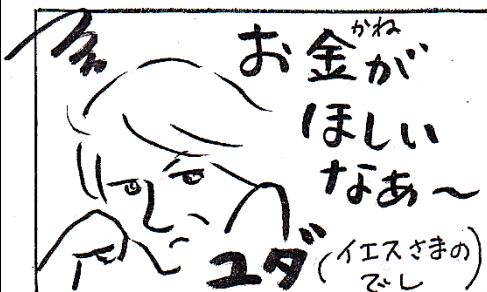 お金が
かね
ほしい
なあ〜
ユダ(イエスさまの
でし)